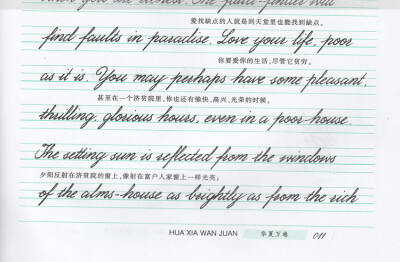 when you are richest. The fault-finder will
爱找缺点的人就是到天堂里也能找到缺点。
find faults in paradise. Love your life, poor
你要爱你的生活,尽管它贫穷。
as it is. You may perhaps have some pleasant,
甚至在一个济贫院里,你也还有愉快、高兴、光荣的时候。
thrilling, glorious hours, even in a poor-house.
The setting sun is reflected from the windows
夕阳反射在济贫院的窗上,像射在富户人家窗上一样光亮;
of the alms-house as brightly as from the rich
HUA XIA WAN JUAN 华夏万卷 011